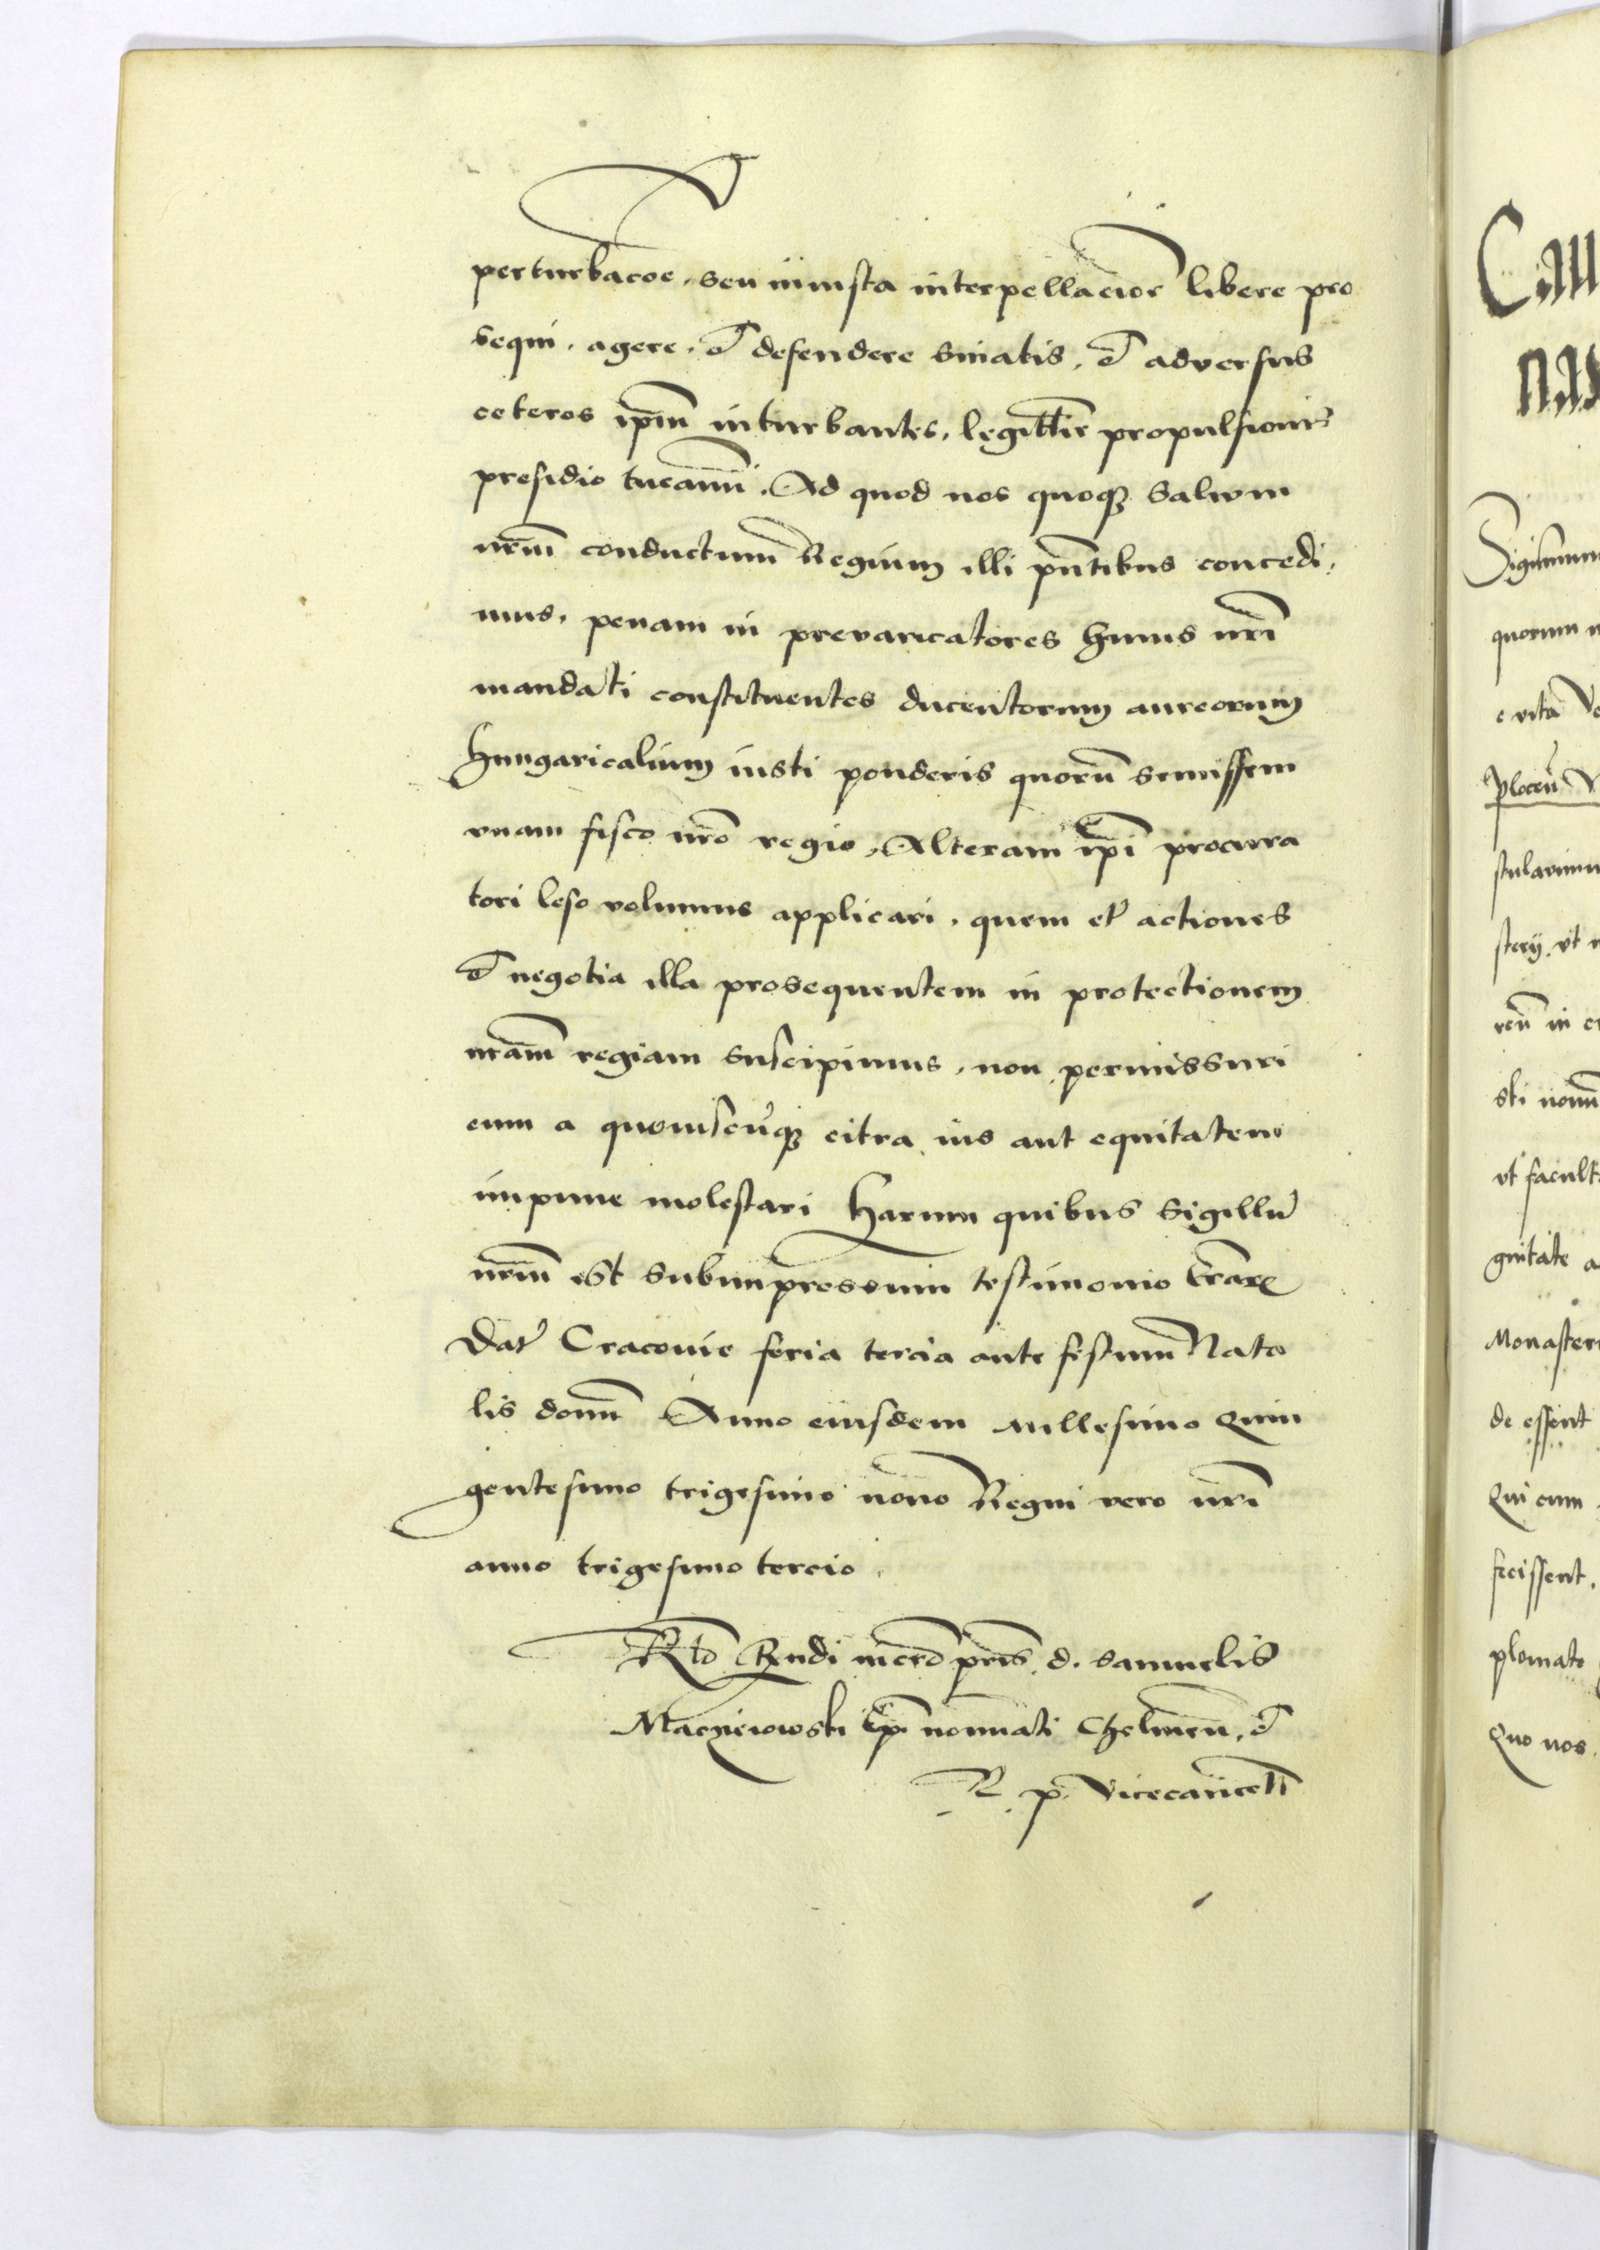 perturbacoe, seu iniusta interpellacione libere pro
sequi, agere, et defendere sinatis, et adversus
ceteros ipm inturbantes, legittie propulsionis
presidio tueamini. Ad quod nos quoqz salvum
nrm conductum Regium illi pntibus concedi,
mus, penam in prevaricatores huius nri
mandati constituentes ducentorum aureorum
Hungaricalium iusti ponderis quoru semissem
vnam fisco nro regio, Alteram ipi procura
tori leso volumus applicari, quem et actiones
et negotia illa prosequentem in protectionem
nram regiam suscipimus, non permissuri
eum a quouiscuqz citra ius aut equitatem
impune molestari Harum quibus sigillu
nrm est subimpressum testimonio lrar
Dat Cracovie feria tercia ante festum Nata
lis domi Anno eiusdem millesimo Quin
gentesimo trigesimo nono Regni vero nri
anno trigesimo tercio.
Rlo Rndi in cro pris d. Samuelis
Maczieiowski Epi nominati Chelmen, et
R. p. Vicecancell
Cau
nas
Sigismun
quorum
e vita
plocen
stulavimu
sterij. vt
ren in
sti nomi
vt facult
gnitate a
Monaster
de essent
Qui cum
fecissent.
plomate
Quo nos